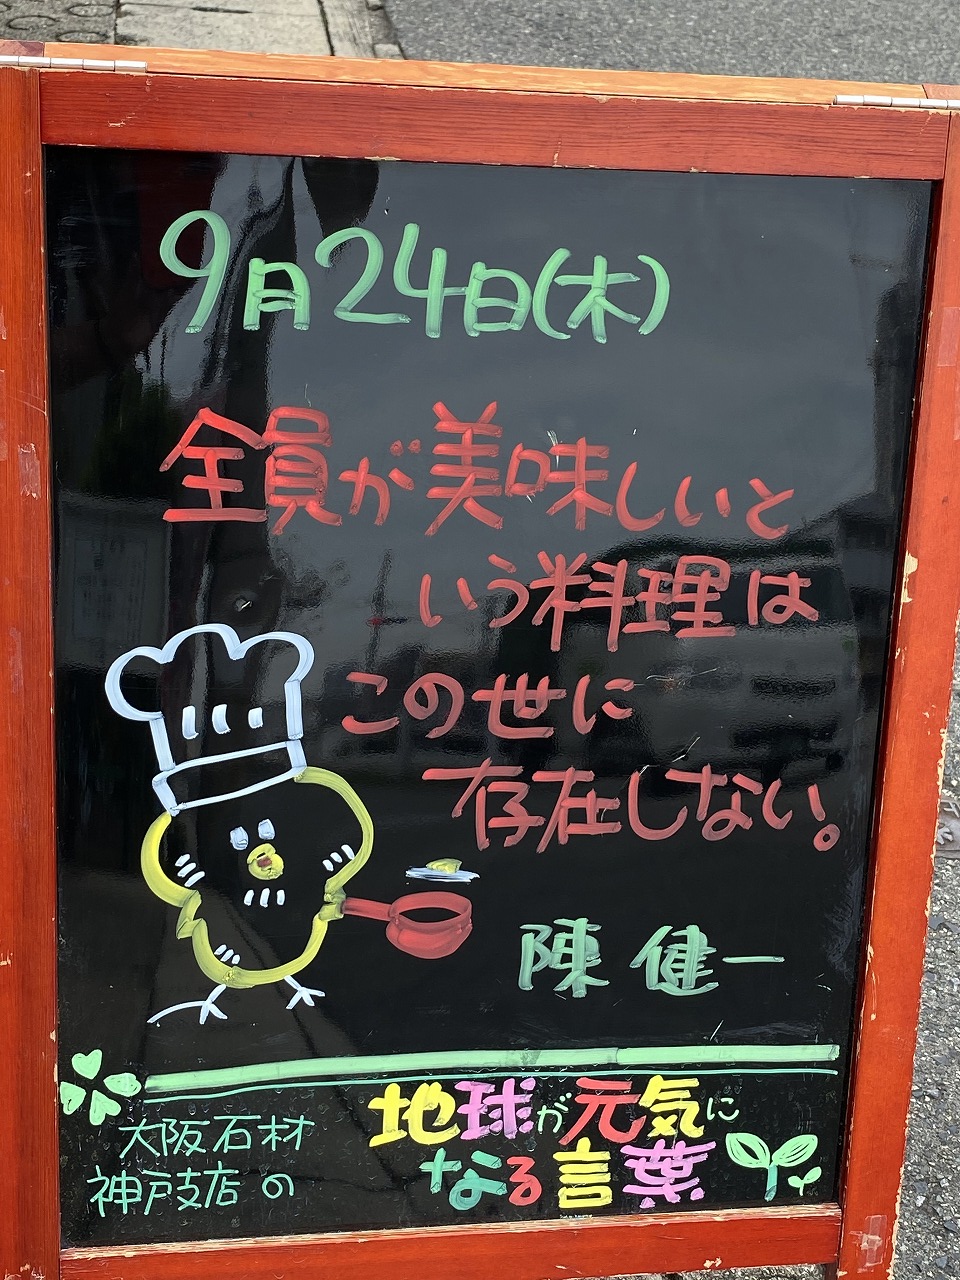 9月24日(木)
全員が美味しいと
いう料理は
この世に
存在しない。
陳 健一
大阪石材
神戸支店 の
地球が元気に
なる言葉